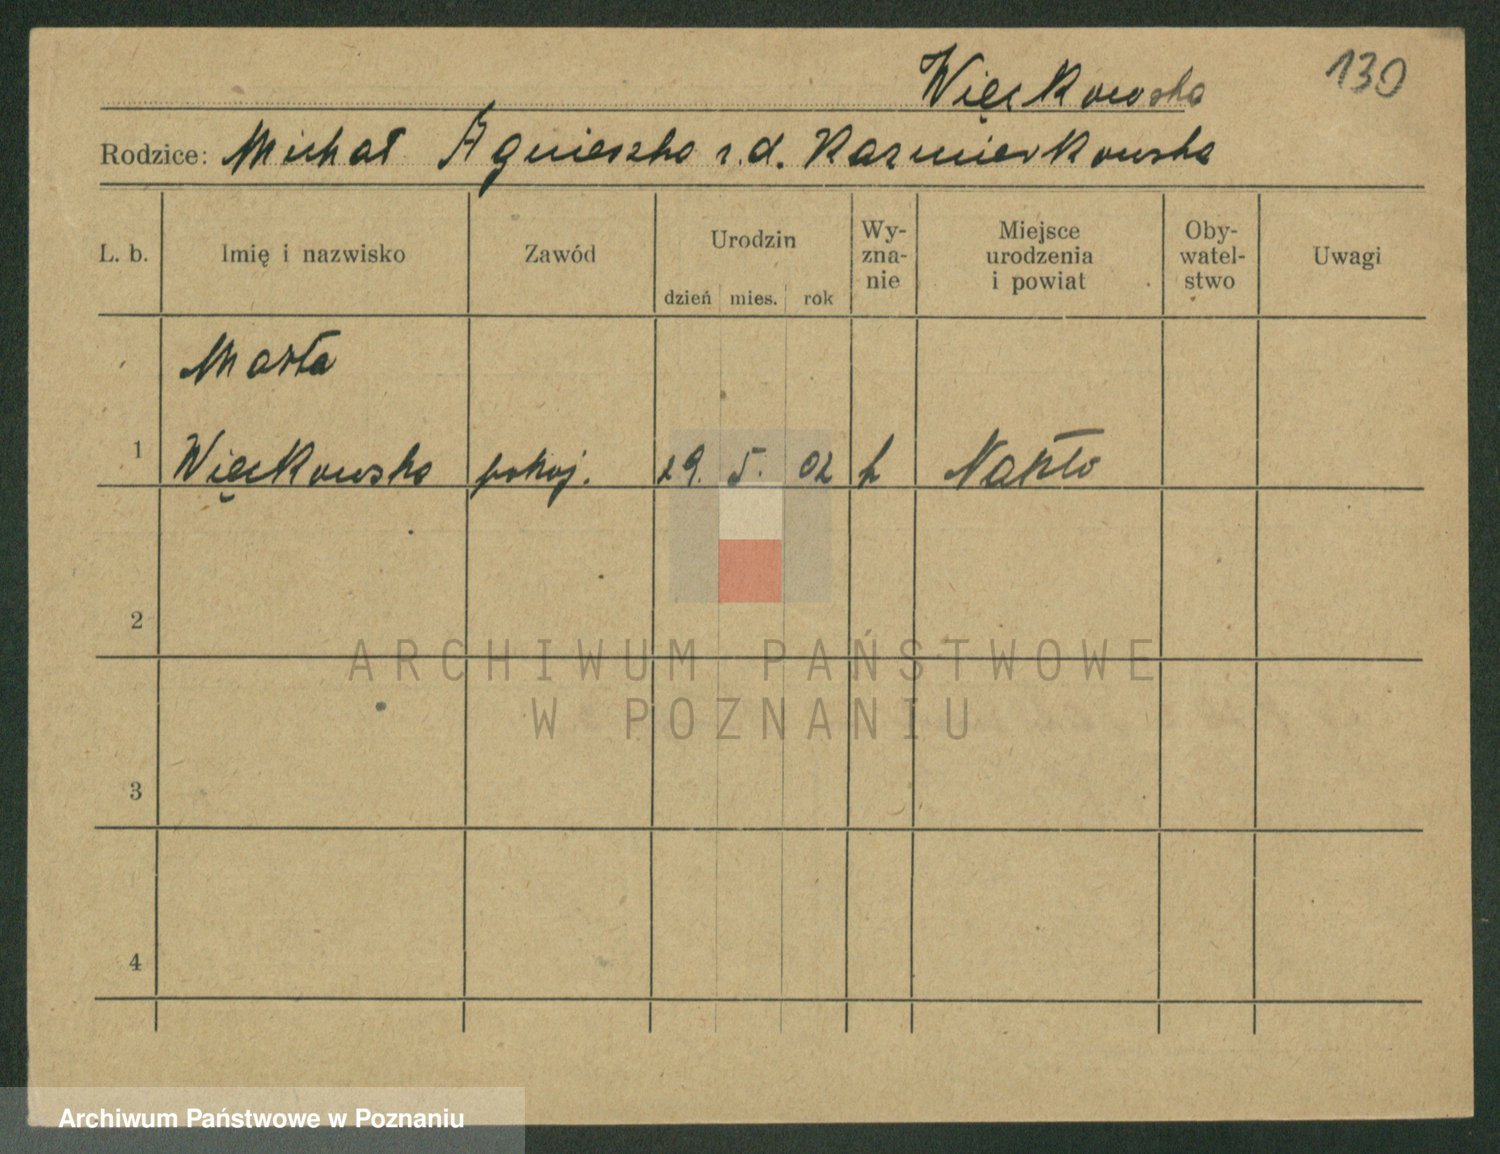 Więckowska 130
Rodzice: Michał Agnieszka r. d. Kazmierkowska
L. b. Imię i nazwisko Zawód Urodzin dzień mies. rok Wy-zna-nie Miejsce urodzenia i powiat Oby-watel-stwo Uwagi
Marta
1 Więckowska pokoj. 29. 5. 02 Nakło
2
ARCHIWUM PAŃSTWOWE
W POZNANIU
3
4
Archiwum Państwowe w Poznaniu